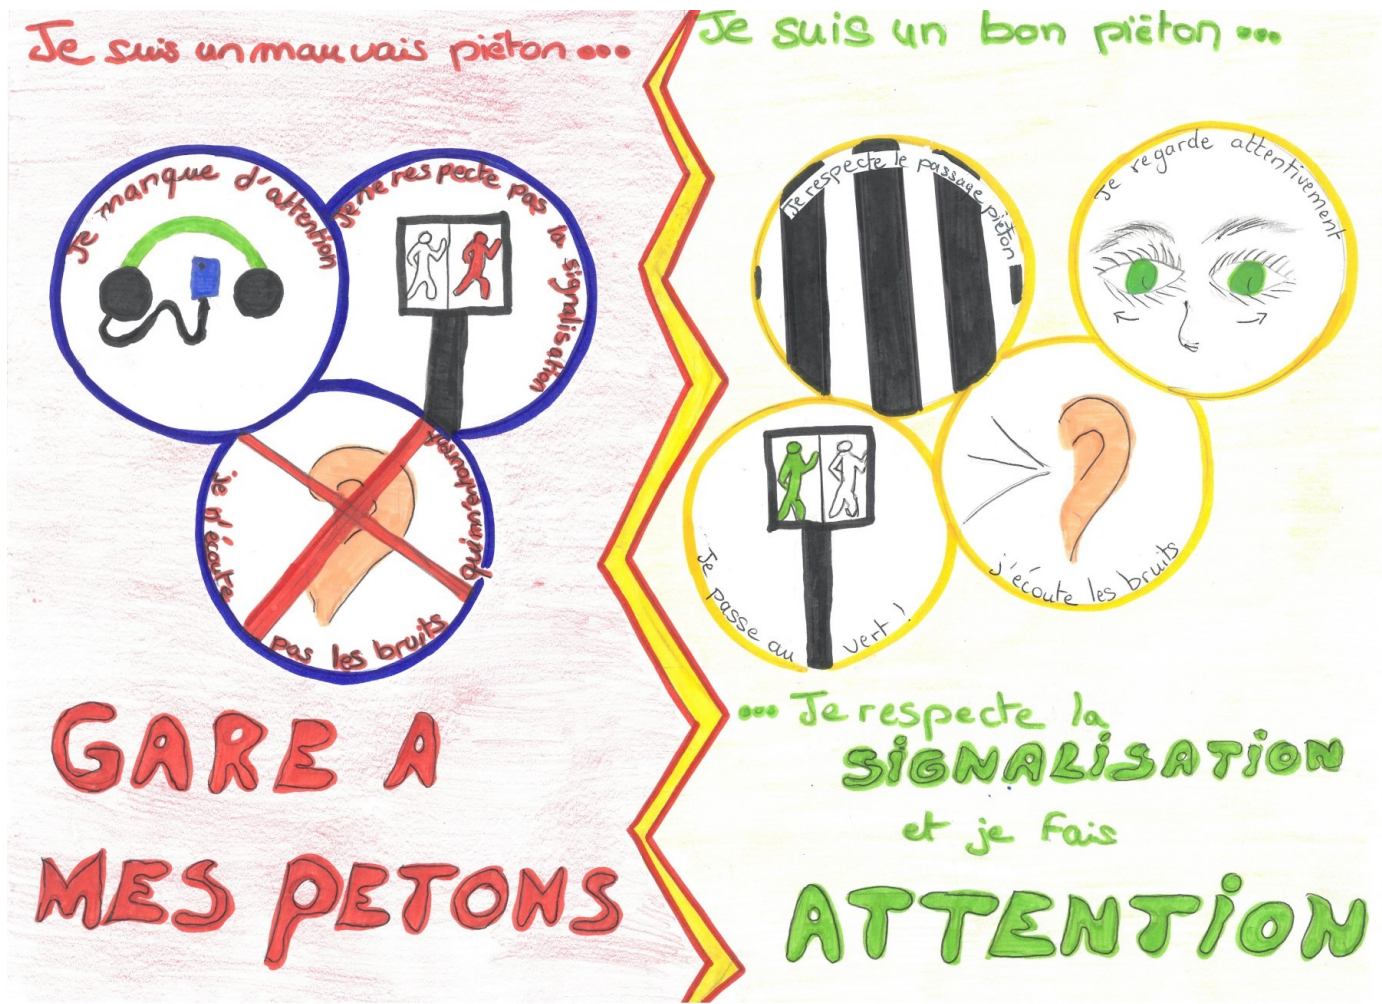 Je suis un mauvais piéton...
Je manque d'attention
Je ne respecte pas la signalisation
je n'écoute
pas les bruits
GARE A
MES PETONS
Je suis un bon piëton...
Je respecte le passage piéton
Je regarde attentivement
Je passe au vert !
j'écoute les bruits
... Je respecte la
SiGNALiSATiON
et je fais
ATTENTiON